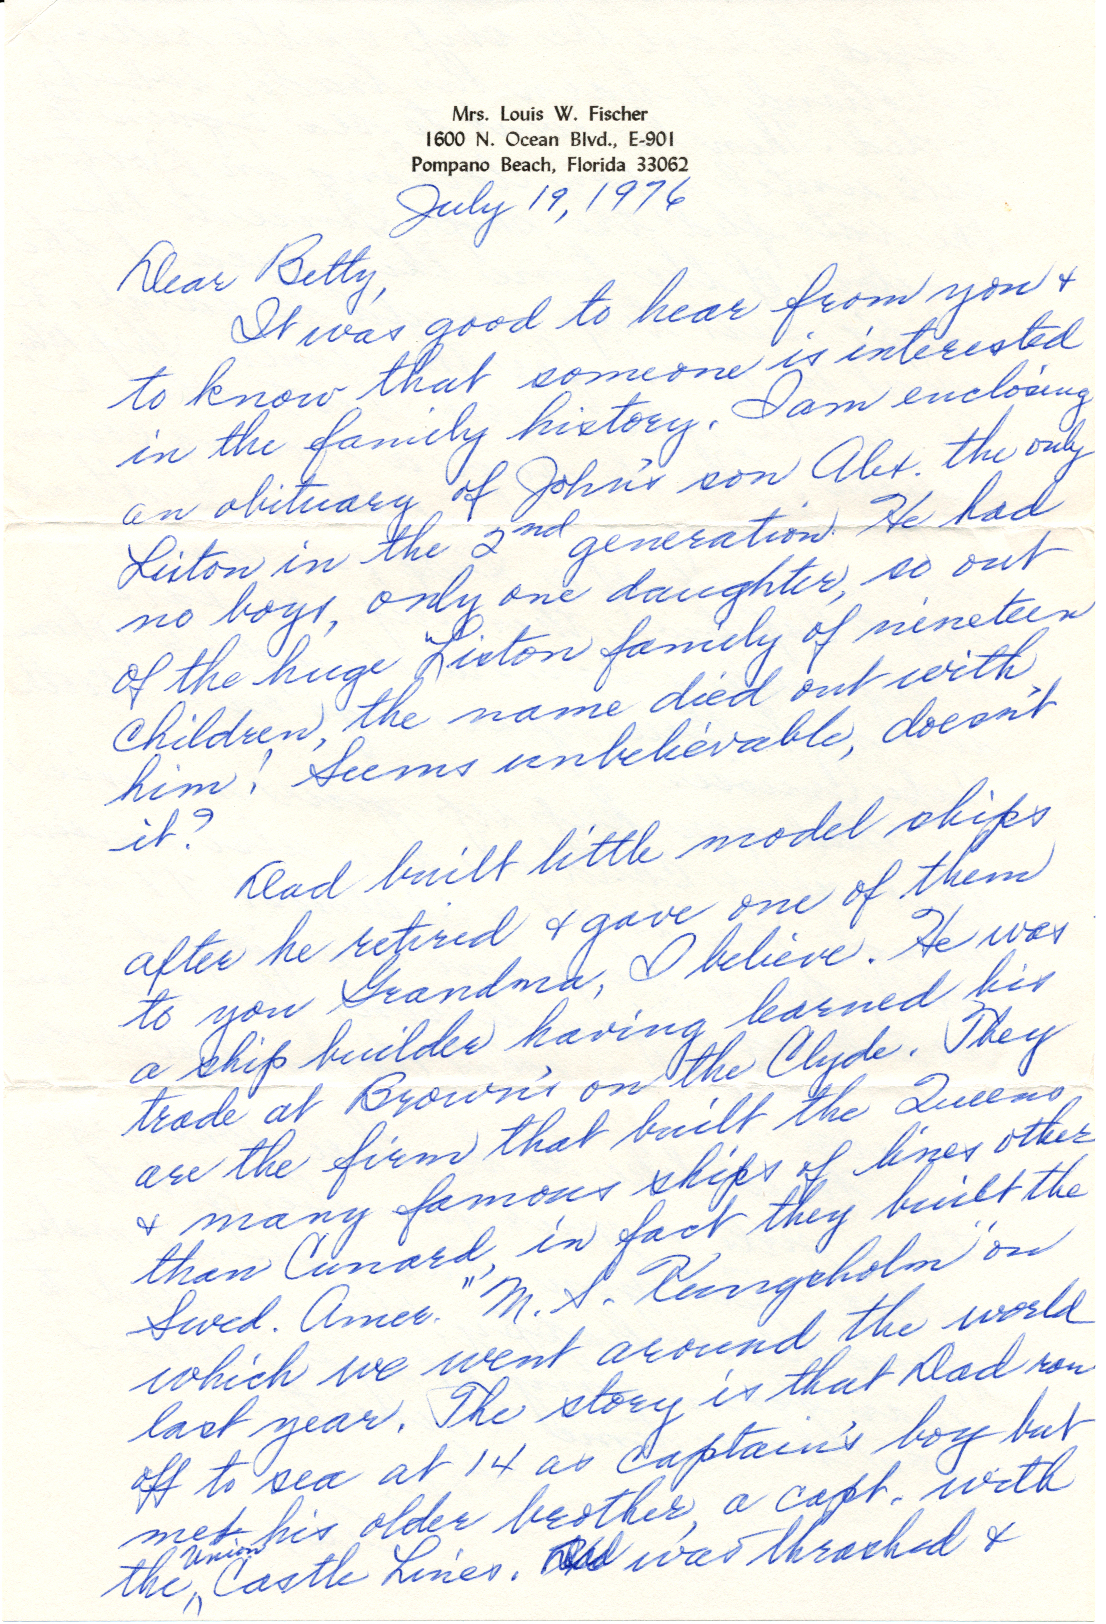 Mrs. Louis W. Fischer
1600 N. Ocean Blvd., E-901
Pompano Beach, Florida 33062
July 19, 1976
Dear Betty,
It was good to hear from you &
to know that someone is interested
in the family history. I am enclosing
an obituary of John's son Alex. the only
Liston in the 2nd generation. He had
no boys, only one daughter, so out
of the huge Liston family of nineteen
children, the name died out with
him! Seems unbelievable, doesn't
it?
Dad built little model ships
after he retired & gave one of them
to you Grandma, I believe. He was
a ship builder having learned his
trade at Brown's on the Clyde. They
are the firm that built the Queens
& many famous ships of lines other
than Cunard, in fact they built the
Swed. Amer. "M. S. Kungsholm" on
which we went around the world
last year. The story is that Dad ran
off to sea at 14 as captain's boy but
met his older brother, a capt. with
the Union Castle Lines. Dad was thrashed &